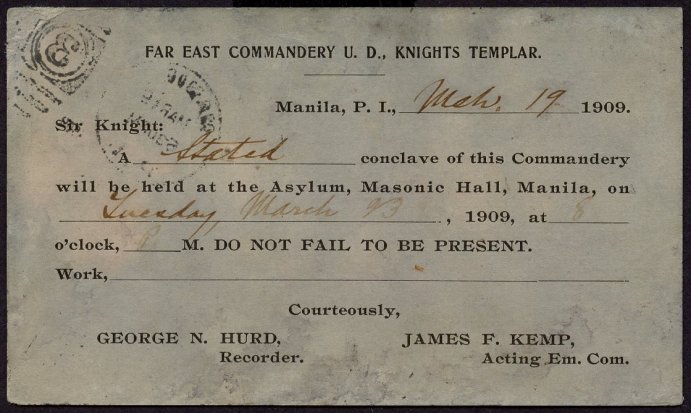 FAR EAST COMMANDERY U. D., KNIGHTS TEMPLAR.
Manila, P. I., Mch. 19 1909.
Sir Knight:
A Stated conclave of this Commandery
will be held at the Asylum, Masonic Hall, Manila, on
Tuesday March 23, 1909, at 8
o'clock, P M. DO NOT FAIL TO BE PRESENT.
Work,
Courteously,
GEORGE N. HURD, JAMES F. KEMP,
Recorder. Acting Em. Com.